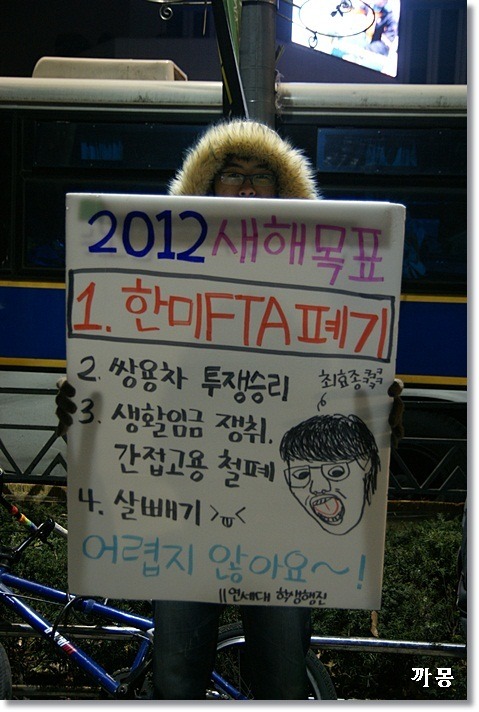 2012 새해목표
1. 한미FTA 폐기
2. 쌍용차 투쟁승리
최효종ㅋㅋㅋㅋ
3. 생활임금 쟁취,
간접고용 철폐
4. 살빼기 >ㅠ<
어렵지 않아요~!
연세대 학생행진
까몽